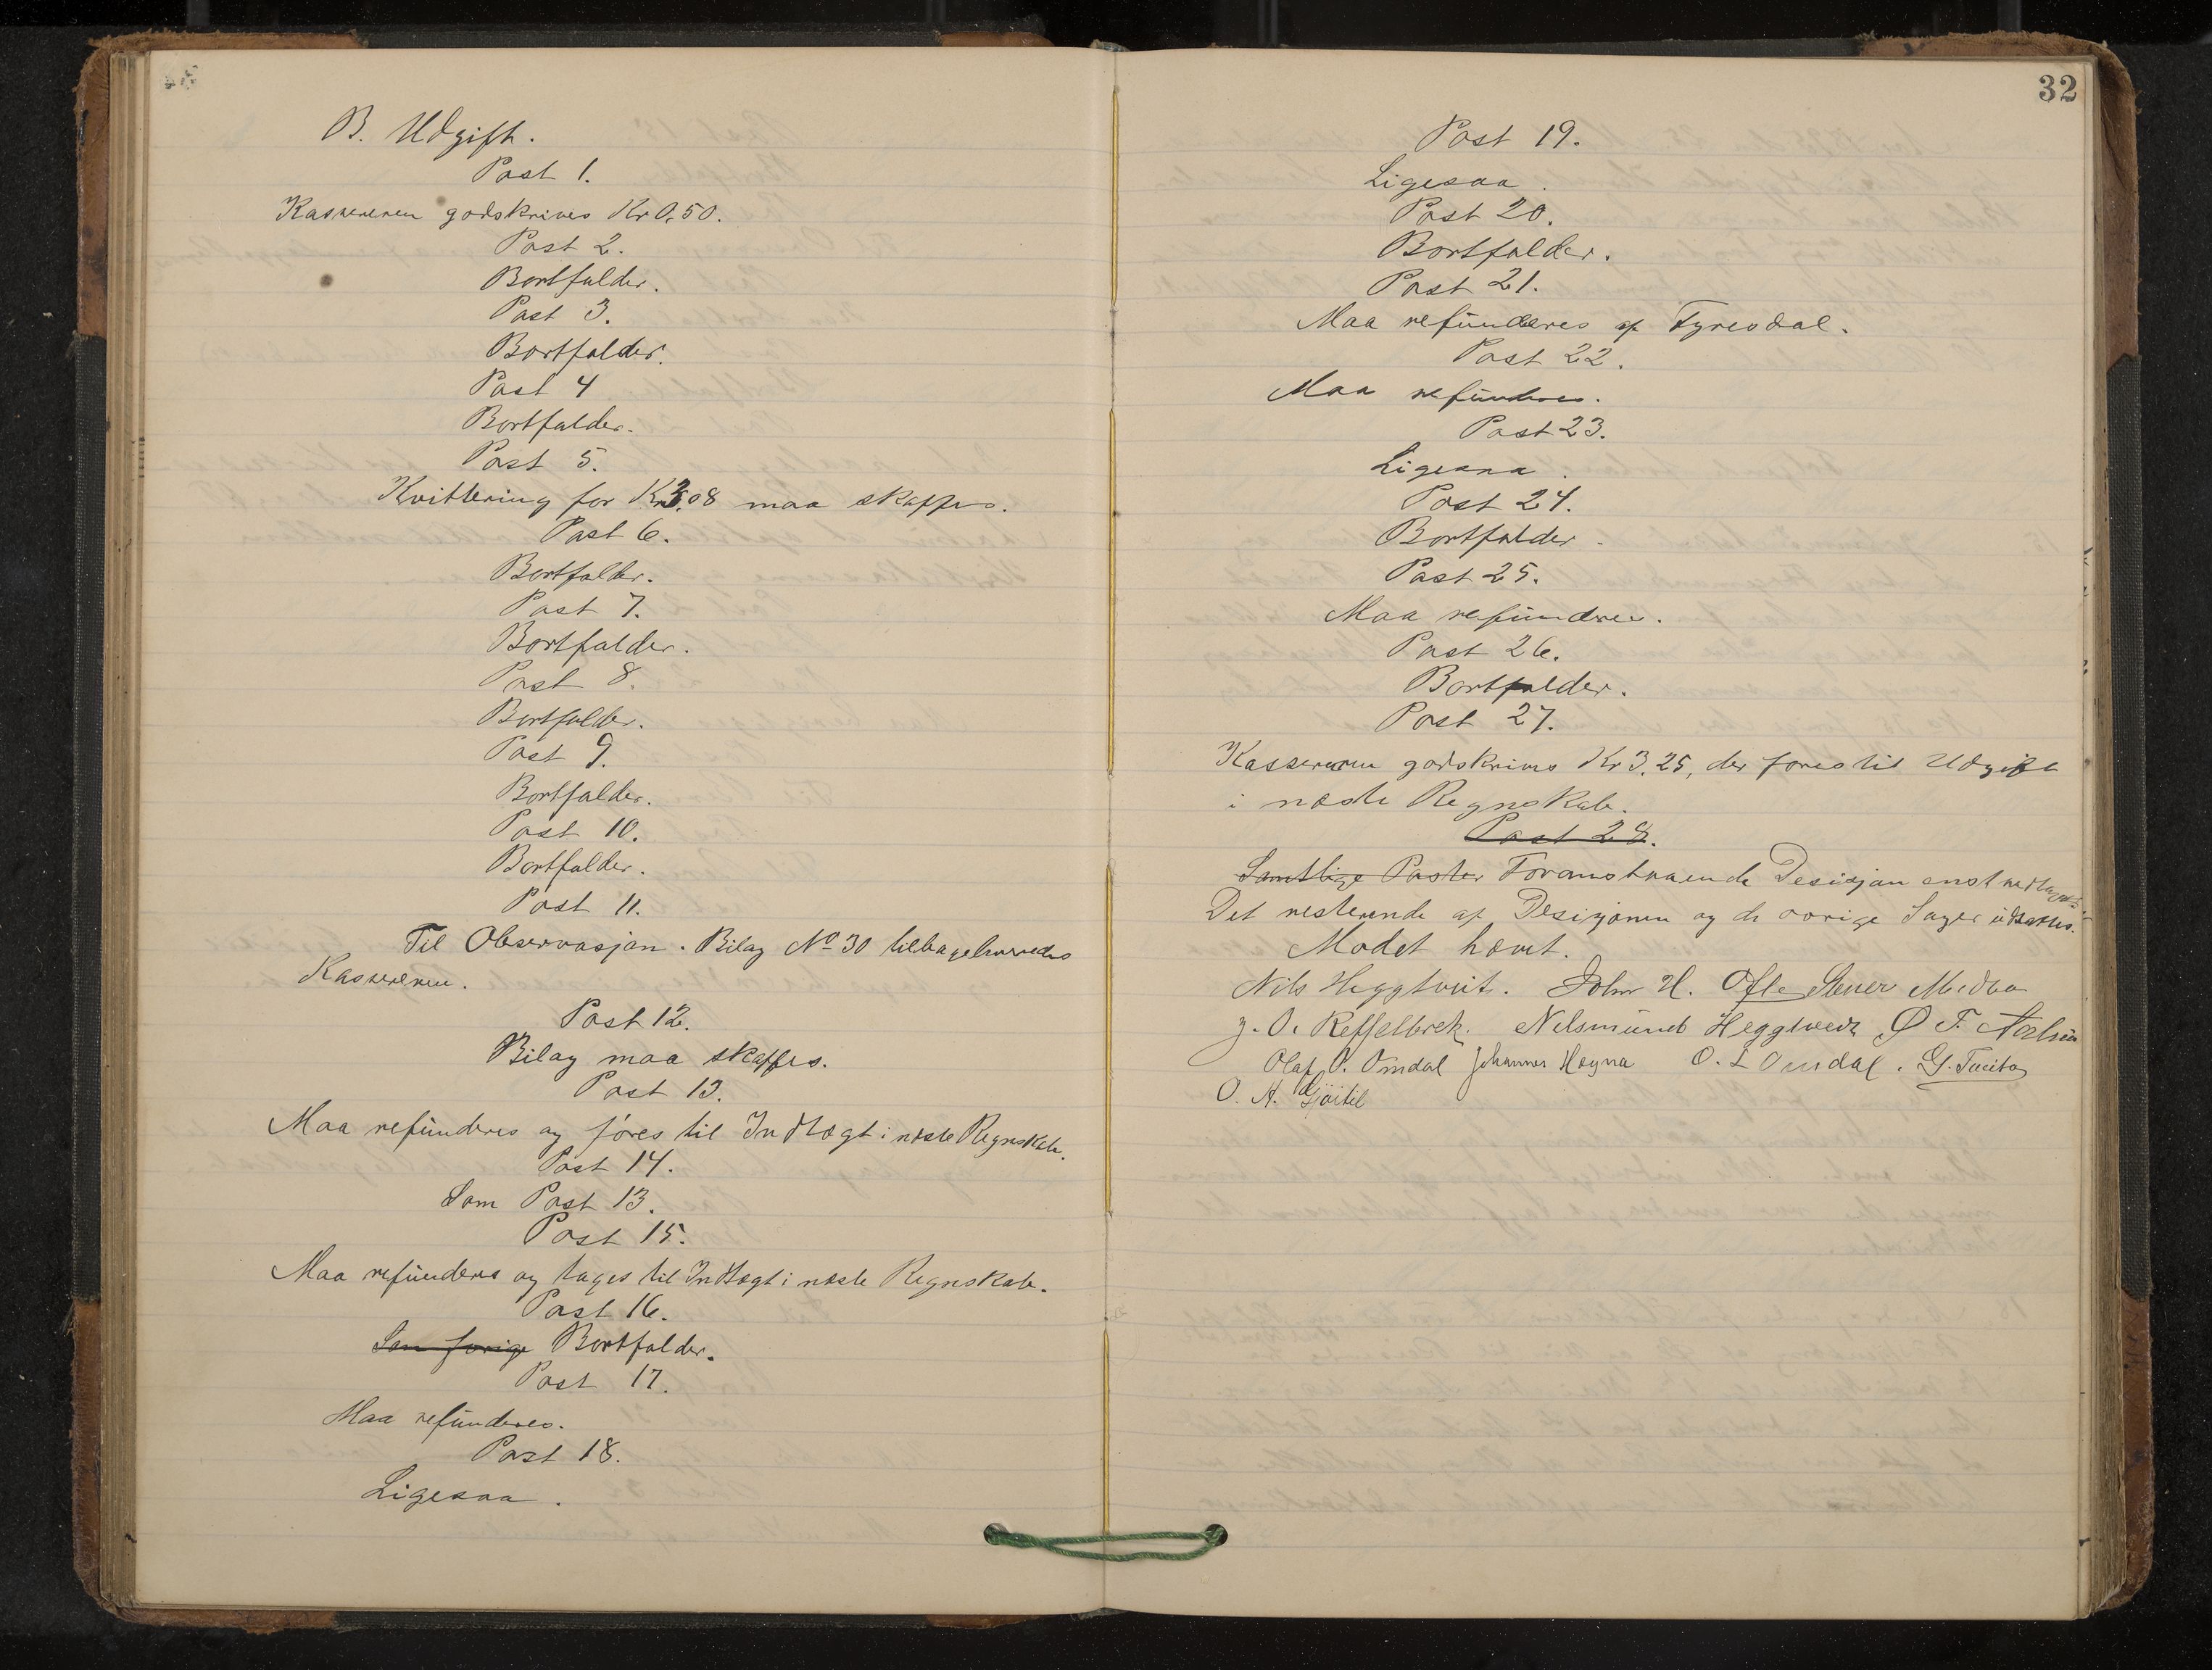 B. Udgift.
Post 1.
Kassereren godskrives Kr 0,50.
Post 2.
Bortfalder.
Post 3.
Bortfalder.
Post 4
Bortfalder.
Post 5.
Kvittering for Kr 3,08 maa skaffes.
Post 6.
Bortfalder.
Post 7.
Bortfalder.
Post 8.
Bortfalder.
Post 9.
Bortfalder.
Post 10.
Bortfalder.
Post 11.
Til Observasjon. Bilag No 30 tilbageleveredes
Kassereren.
Post 12.
Bilag maa skaffes.
Post 13.
Maa refunderes og føres til Indtægt i næste Regnskab.
Post 14.
Som Post 13.
Post 15.
Maa refunderes og tages til Indtægt i næste Regnskab.
Post 16.
Som forrige Bortfalder.
Post 17.
Maa refunderes.
Post 18.
Ligesaa.
32
Post 19.
Ligesaa.
Post 20.
Bortfalder.
Post 21.
Maa refunderes af Fyresdal.
Post 22.
Maa refunderes.
Post 23.
Ligesaa.
Post 24.
Bortfalder.
Post 25.
Maa refunderes.
Post 26.
Bortfalder.
Post 27.
Kassereren godskrives Kr 3,25, der føres til Udgift
i næste Regnskab.
Post 28.
Samtlige Poster Foranstaaende Desisjon enst vedtaget
Det resterende af Desisjonen og de øvrige Sager udsattes.
Mødet hævt.
Nils Heggtveit. John H. Ofte Stener Medbø
O. Neffelbrek. Nilsmund Heggtvedt Ø T.
Olaf O. Omdal Johannes Høgna O. L Omdal. G. Tveito
O. A.